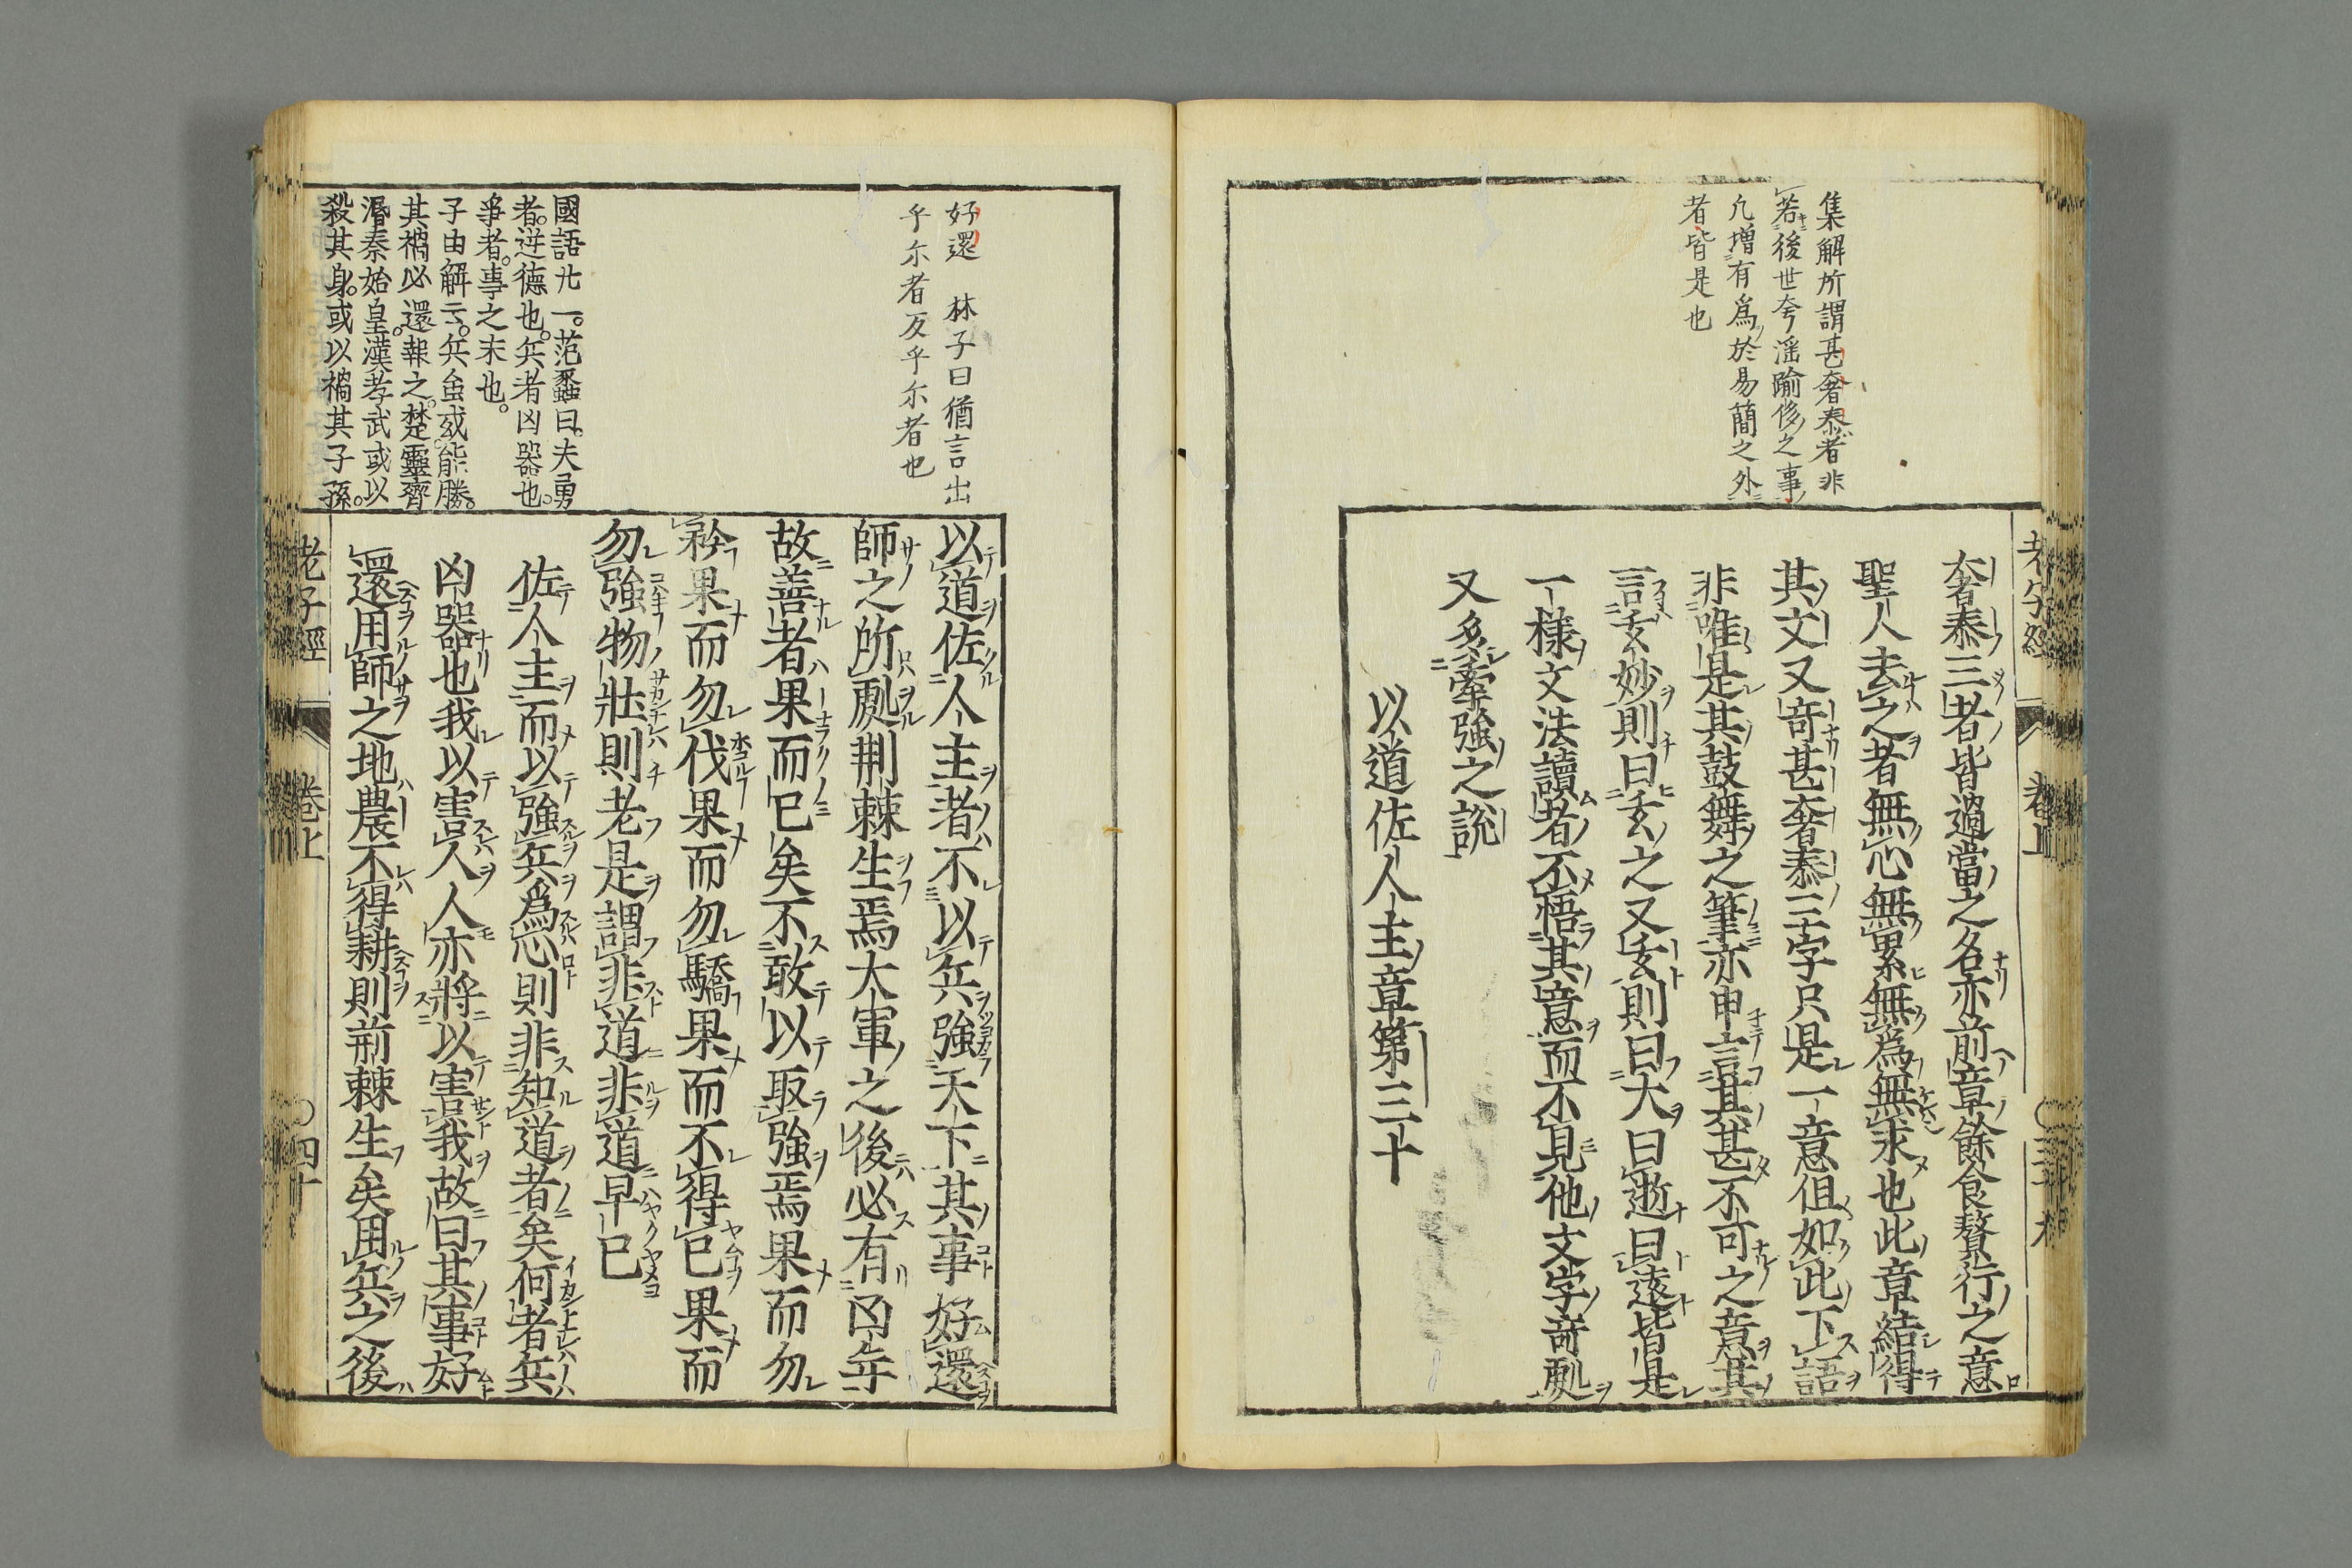 集解所謂甚奢泰者非
若後世夸淫踰侈之事
凡增有爲於易簡之外
者皆是也
老子經 卷上
奢泰三者皆過當之名亦前章餘食贅行之意
聖人去之者無心無累無爲無求也此章結得
其文又竒甚奢泰三字只是一意但如此下語
非唯是其鼓舞之筆亦申言其甚不可之意其
言玄妙則曰玄之又玄則曰大曰逝曰遠皆是
一様文法讀者不悟其意而不見他文字竒處
又多牽強之說
以道佐人主章第三十
好還 林子曰猶言出
乎尓者反乎尓者也
國語廿一范蠡曰夫勇
者逆德也兵者凶器也
爭者事之末也
子由解云兵虽或能勝
其禍必還報之楚靈齊
湣秦始皇漢孝武或以
殺其身或以禍其子孫
以道佐人主者不以兵強天下其事好還
師之所處荆棘生焉大軍之後必有凶年
故善者果而已矣不敢以取強焉果而勿
矜果而勿伐果而勿驕果而不得已果而
勿強物壯則老是謂非道非道早已
佐人主而以強兵爲心則非知道者矣何者兵
凶器也我以害人人亦將以害我故曰其事好
還用師之地農不得耕則荊棘生矣用兵之後
老子經 卷上 〇四十